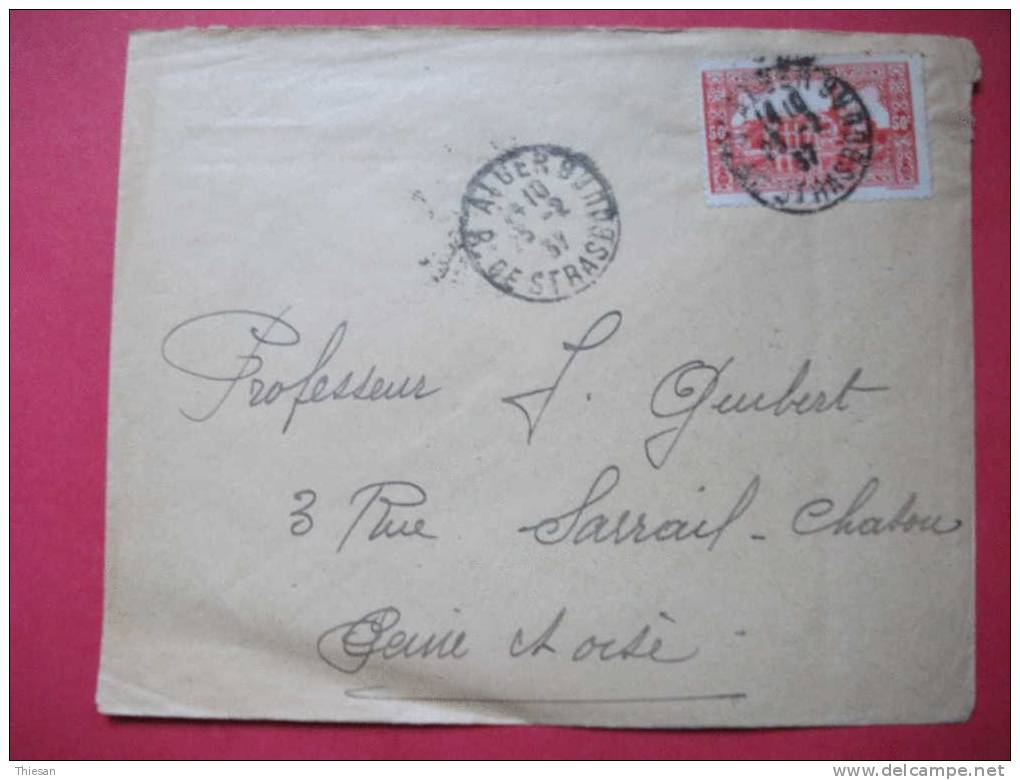 50c 50c
ALGER BOURSE
14 10
-2
37
R. DE STRASB
Professeur J. Guibert
3 Rue Sarrail - Chatou
Seine et oise
Thiesan
www.delcampe.net